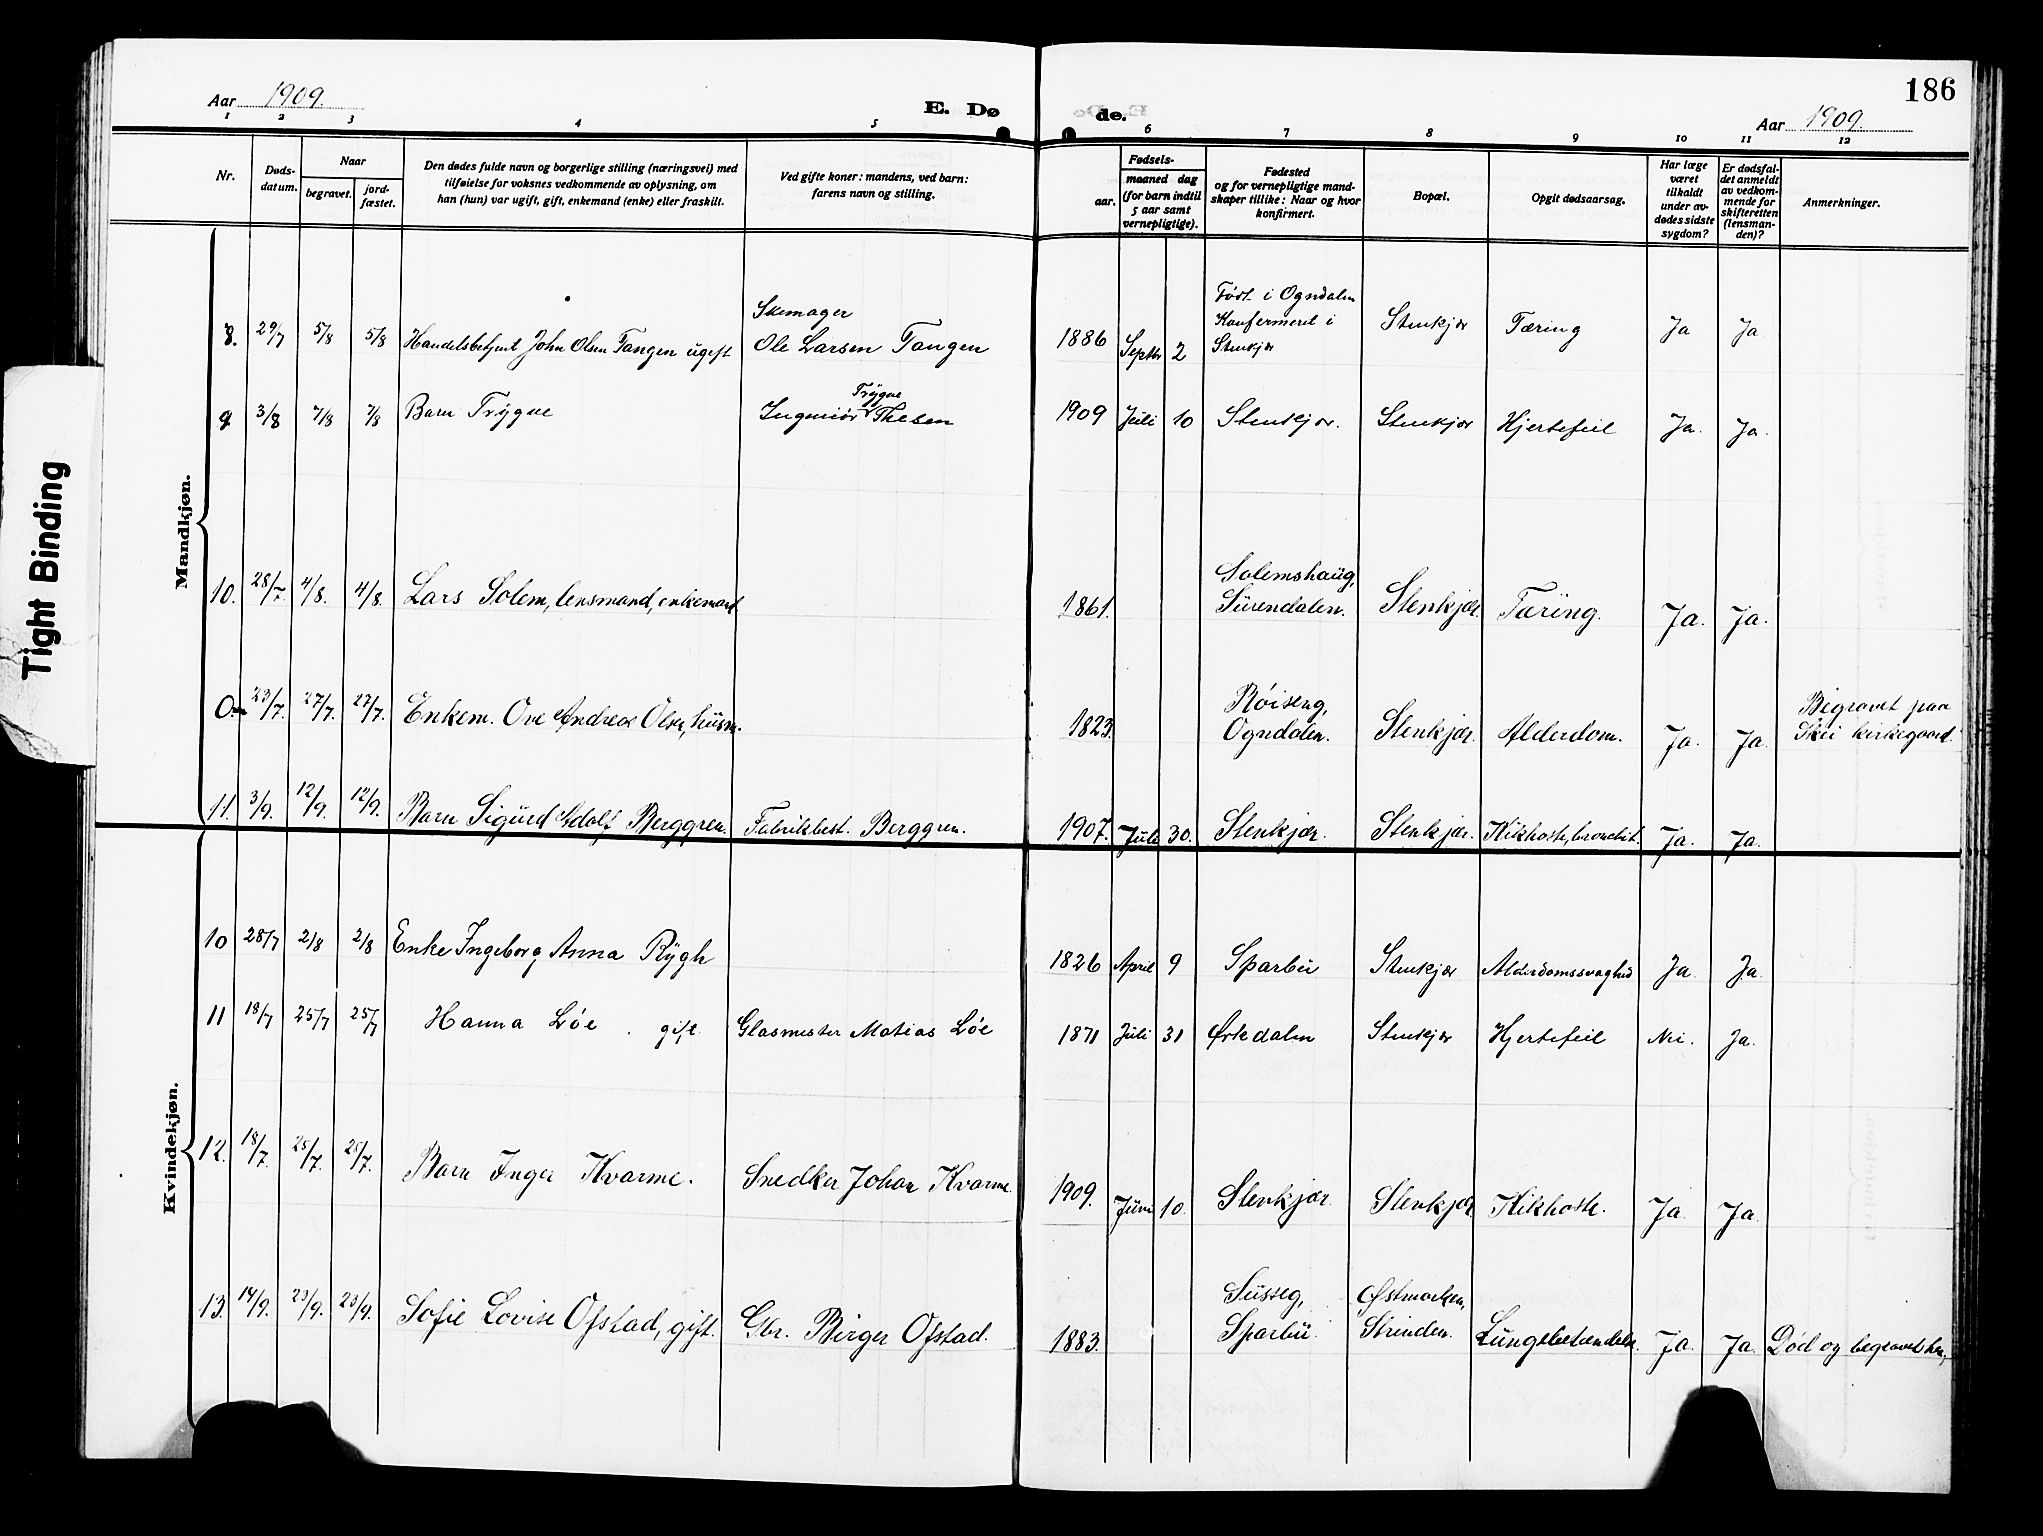 186
Aar 1909.
E. Dø
de.
Aar 1909.
1 2 3 4 5 6 7 8 9 10 11 12
Nr.
Døds-
datum.
Naar
begravet.
jord-
fæstet.
Den dødes fulde navn og borgerlige stilling (næringsvei) med
tilføielse for voksnes vedkommende av oplysning, om
han (hun) var ugift, gift, enkemand (enke) eller fraskilt.
Ved gifte koner: mandens, ved barn:
farens navn og stilling.
Fødsels-
aar.
maaned dag
(for barn indtil
5 aar samt
vernepligtige).
Fødested
og for vernepligtige mand-
skaper tillike: Naar og hvor
konfirmert.
Bopæl.
Opgit dødsaarsag.
Har læge
været
tilkaldt
under av-
dødes sidste
sygdom?
Er dødsfal-
det anmeldt
av vedkom-
mende for
skifteretten
(lensman-
den)?
Anmerkninger.
Tight Binding
Mandkjøn.
8. 29/7 5/8 5/8 Handelsbetjent John Olsen Tangen ugift
Skomager
Ole Larsen Tangen
1886 Septbr 2
Født i Ogndalen
Konfermeret i
Stenkjær
Stenkjær Tæring Ja Ja
9 3/8 7/8 7/8 Barn Trygve
Trygve
Ingeniør Thesen
1909 Juli 10 Stenkjær. Stenkjær Hjertefeil Ja. Ja.
10. 28/7. 4/8. 4/8. Lars Solem, lensmand, enkemand
1861.
Solemshaug,
Surendalen.
Stenkjær. Tæring. Ja. Ja.
0. 23/7. 27/7. 27/7. Enkem. Ove Andreas Olsen, husm.
1823.
Røiseng,
Ogndalen.
Stenkjær. Alderdom. Ja. Ja.
Begravet paa
Skei kirkegaard.
11. 3/9. 12/9. 12/9. Barn Sigurd Adolf Berggren. Fabrikbest. Berggren.
1907. Juli 30. Stenkjær. Stenkjær. Kikhoste, bronchit. Ja. Ja.
Kvindekjøn.
10 28/7 2/8 2/8 Enke Ingeborg Anna Rygh
1826 April 9 Sparbu Stenkjær Alderdomssvaghed Ja. Ja.
11 18/7 25/7 25/7 Hanna Løe gift Glasmester Matias Løe
1871 Juli 31 Ørkedalen Stenkjær Hjertefeil Nei. Ja.
12. 18/7. 25/7. 25/7. Barn Inger Kvarme. Snedker Johan Kvarme.
1909. Juni 10. Stenkjær. Stenkjær Kikhoste. Ja. Ja.
13. 14/9. 23/9. 23/9. Sofie Lovise Ofstad, gift. Gbr. Birger Ofstad.
1883.
Susseg,
Sparbu.
Østmarken,
Strinden.
Lungebetændelse. Ja. Ja. Død og begravet